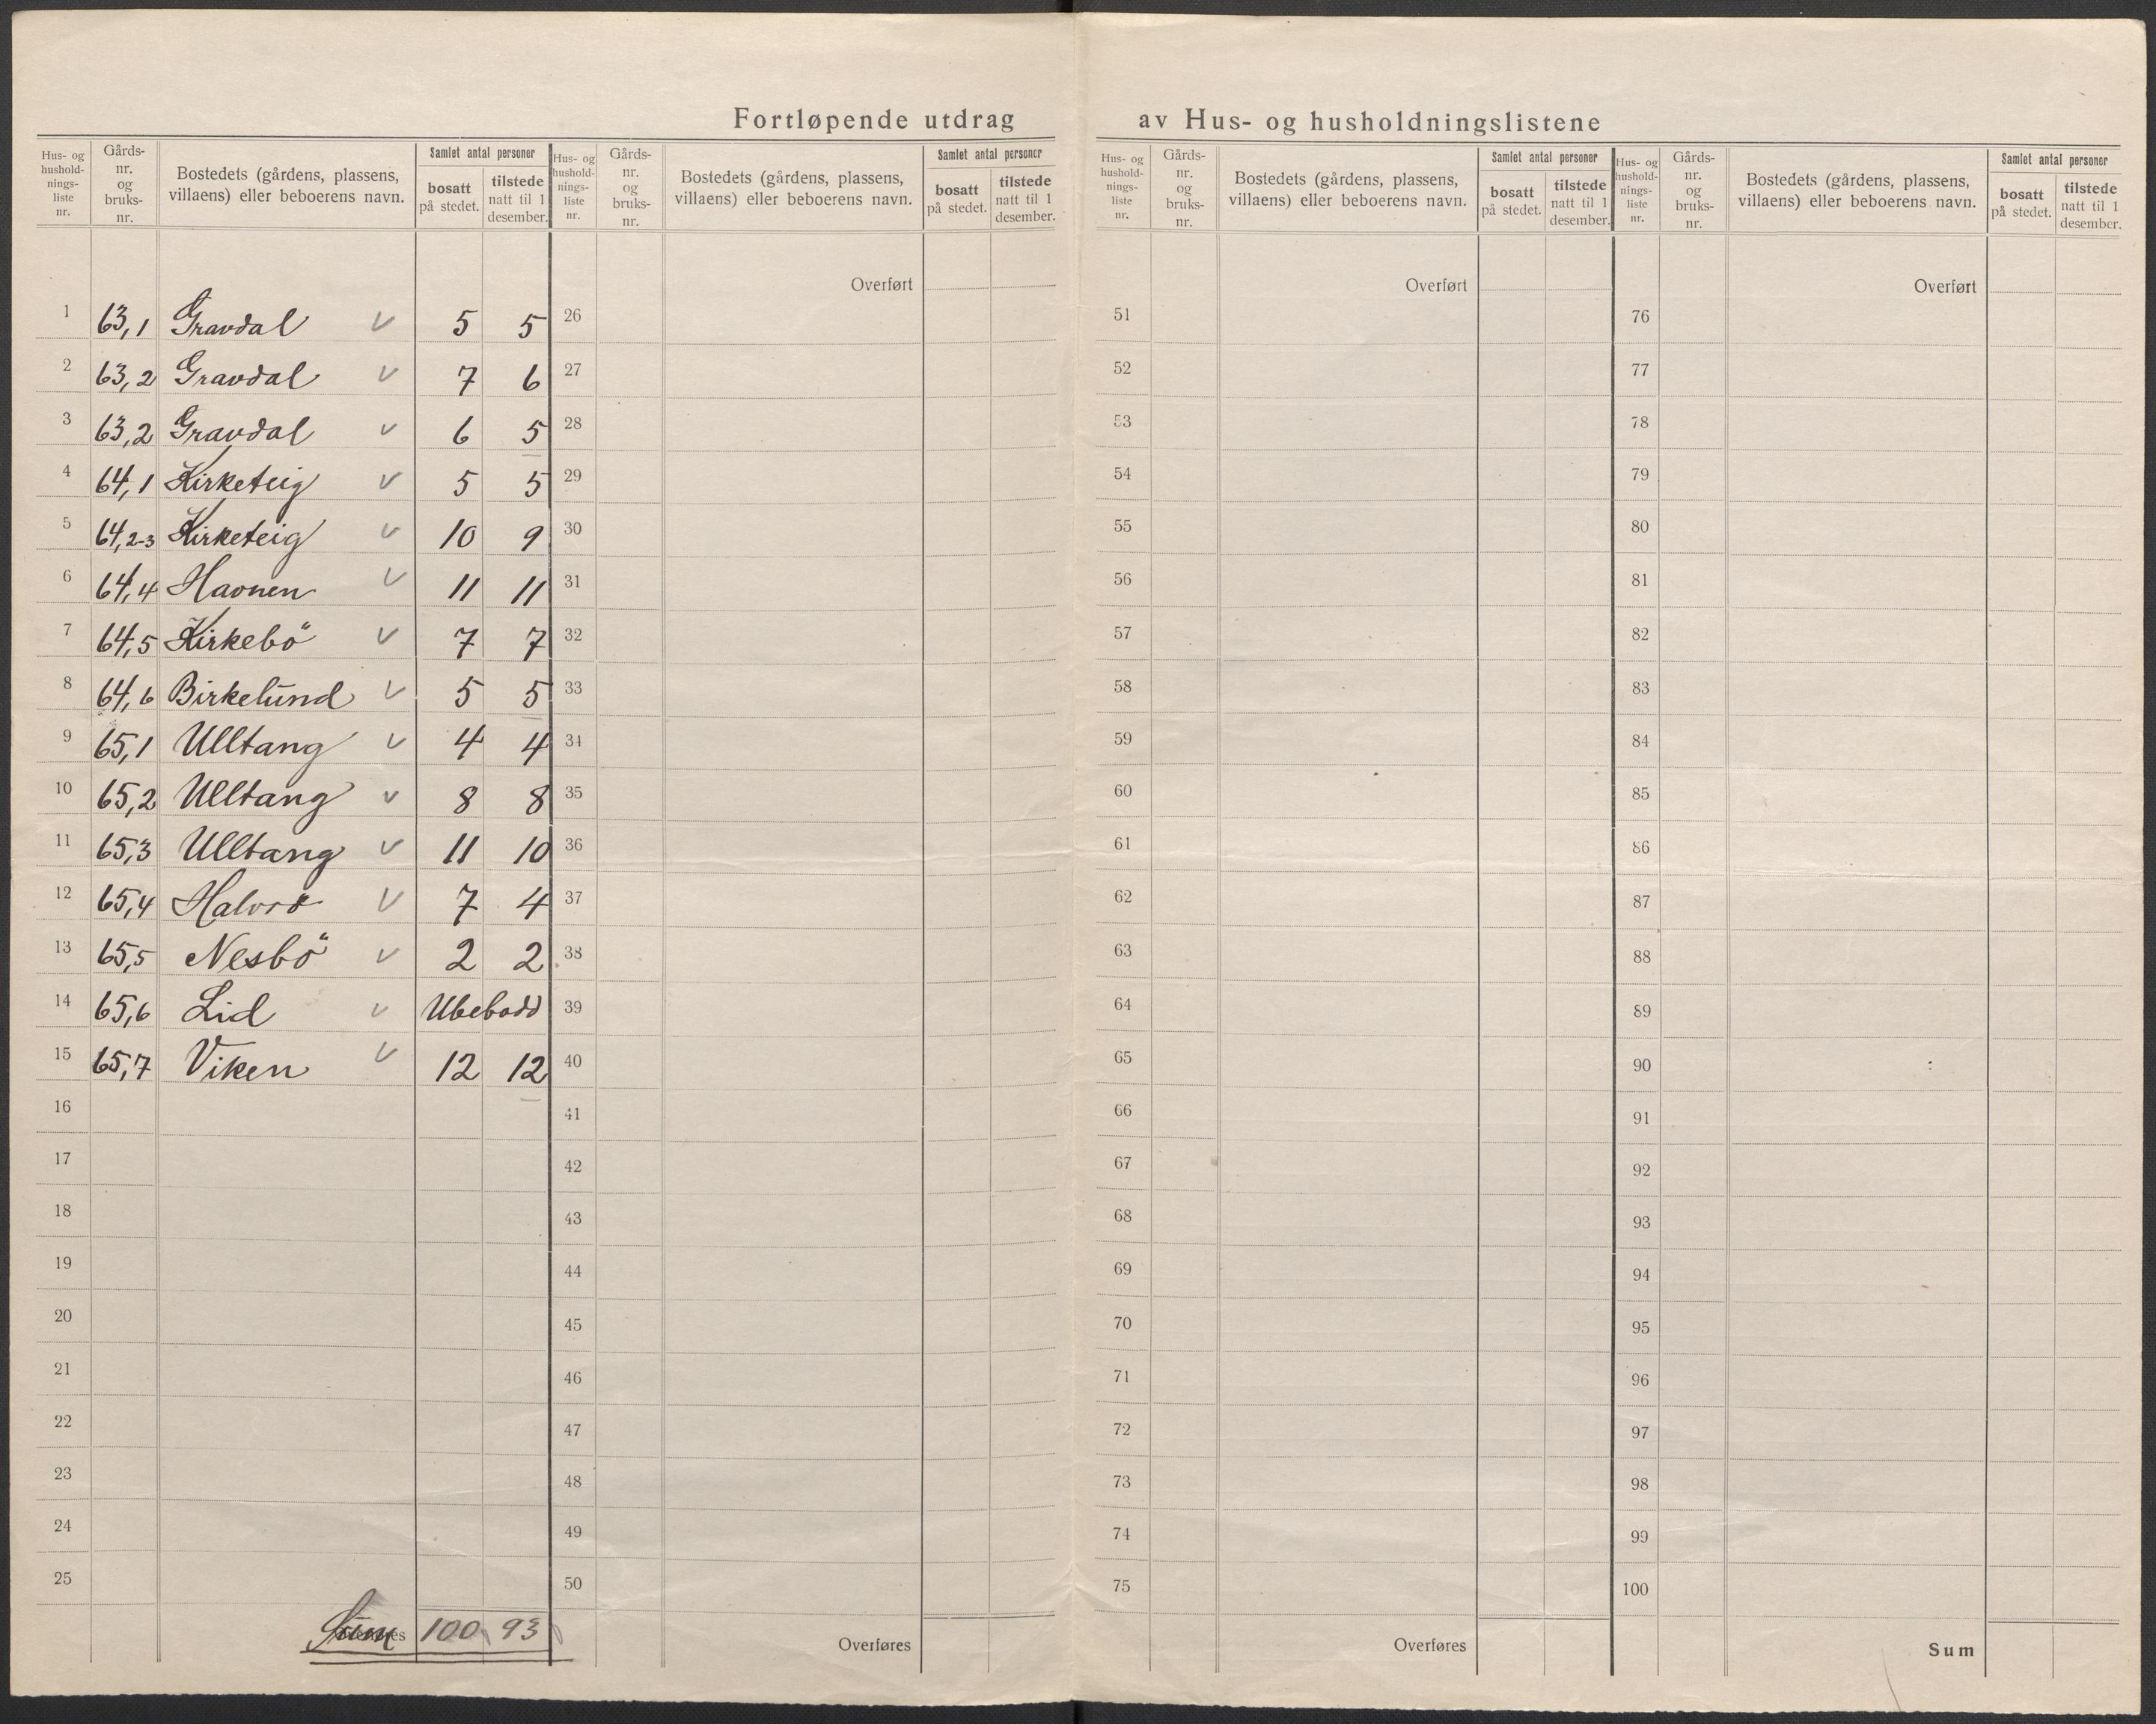 Fortløpende utdrag av Hus- og husholdningslistene
Hus- og hushold-nings-liste nr. | Gårds-nr. og bruks-nr. | Bostedets (gårdens, plassens, villaens) eller beboerens navn. | Samlet antal personer | bosatt på stedet. | tilstede natt til 1 desember.
1 63,1 Gravdal v 5 5
2 63,2 Gravdal v 7 6
3 63,2 Gravdal v 6 5
4 64,1 Kirketeig v 5 5
5 64,2-3 Kirketeig v 10 9
6 64,4 Havnen v 11 11
7 64,5 Kirkebö v 7 7
8 64,6 Birkelund v 5 5
9 65,1 Ulltang v 4 4
10 65,2 Ulltang v 8 8
11 65,3 Ulltang v 11 10
12 65,4 v 7 4
13 65,5 Nesbö v 2 2
14 65,6 Lid v Ubebodd
15 65,7 Viken v 12 12
16
17
18
19
20
21
22
23
24
25
Sum 100 93
Hus- og hushold-nings-liste nr. | Gårds-nr. og bruks-nr. | Bostedets (gårdens, plassens, villaens) eller beboerens navn. | Samlet antal personer | bosatt på stedet. | tilstede natt til 1 desember.
Overført
26
27
28
29
30
31
32
33
34
35
36
37
38
39
40
41
42
43
44
45
46
47
48
49
50
Overføres
Hus- og hushold-nings-liste nr. | Gårds-nr. og bruks-nr. | Bostedets (gårdens, plassens, villaens) eller beboerens navn. | Samlet antal personer | bosatt på stedet. | tilstede natt til 1 desember.
Overført
51
52
53
54
55
56
57
58
59
60
61
62
63
64
65
66
67
68
69
70
71
72
73
74
75
Overføres
Hus- og hushold-nings-liste nr. | Gårds-nr. og bruks-nr. | Bostedets (gårdens, plassens, villaens) eller beboerens navn. | Samlet antal personer | bosatt på stedet. | tilstede natt til 1 desember.
Overført
76
77
78
79
80
81
82
83
84
85
86
87
88
89
90
91
92
93
94
95
96
97
98
99
100
Sum